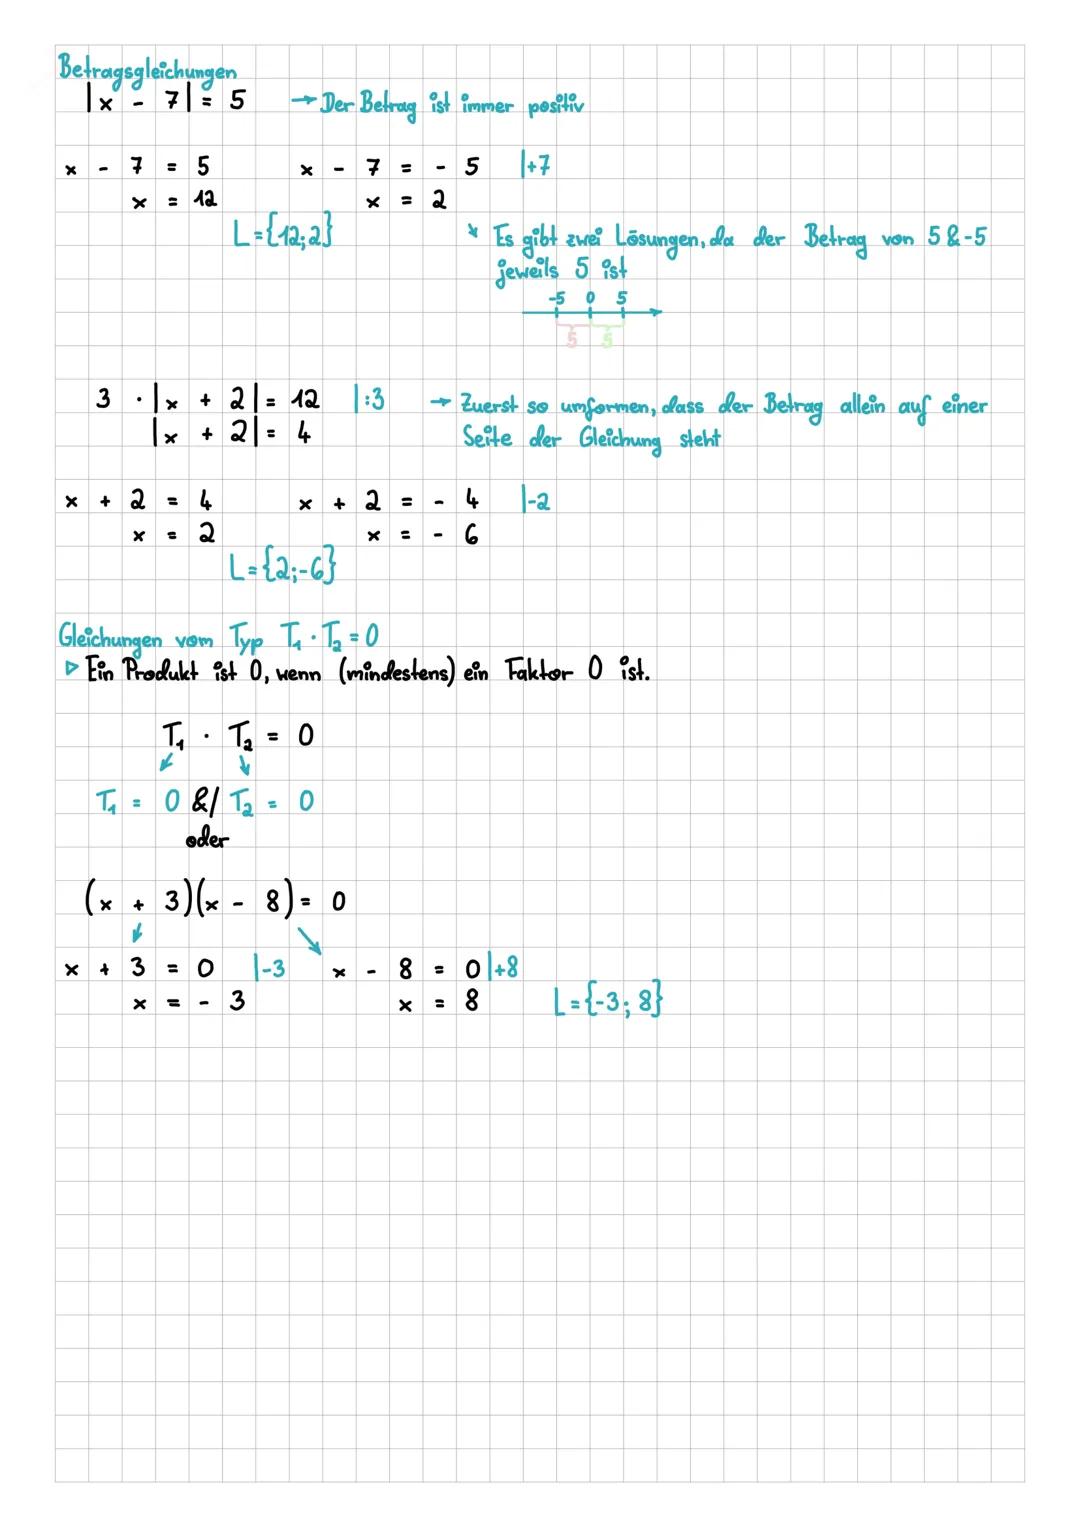 Betragsgleichungen
|x - 7| = 5 → Der Betrag ist immer positiv
x - 7 = 5 x - 7 = - 5 |+7
x = 12 x = 2
L={12;2}
↘ Es gibt zwei Lösungen, da der Betrag von 5 & -5
jeweils 5 ist
-5 0 5
5 5
3 · |x + 2| = 12 |:3 → Zuerst so umformen, dass der Betrag allein auf einer
|x + 2| = 4 Seite der Gleichung steht
x + 2 = 4 x + 2 = - 4 |-2
x = 2 x = - 6
L={2;-6}
Gleichungen vom Typ T₁ · T₂ = 0
▷ Ein Produkt ist 0, wenn (mindestens) ein Faktor 0 ist.
T₁ · T₂ = 0
↙ ↘
T₁ = 0 &/ T₂ = 0
oder
(x + 3)(x - 8) = 0
↙ ↘
x + 3 = 0 |-3 x - 8 = 0 |+8
x = - 3 x = 8 L={-3; 8}